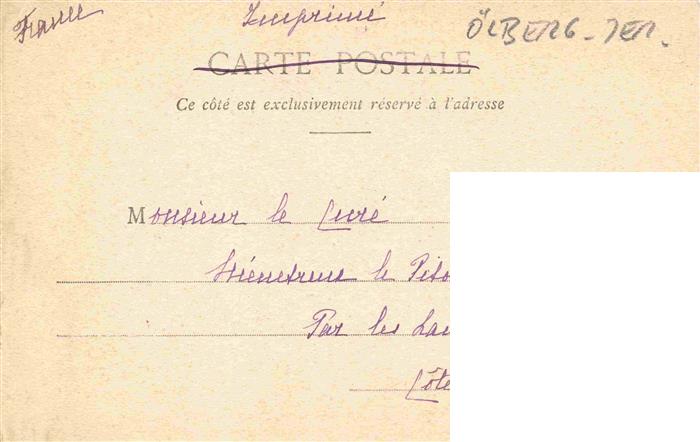 France
Imprimé
ÖLBERG - JER.
CARTE POSTALE
Ce côté est exclusivement réservé à l'adresse
Monsieur le Curé
le
Par les
Côte